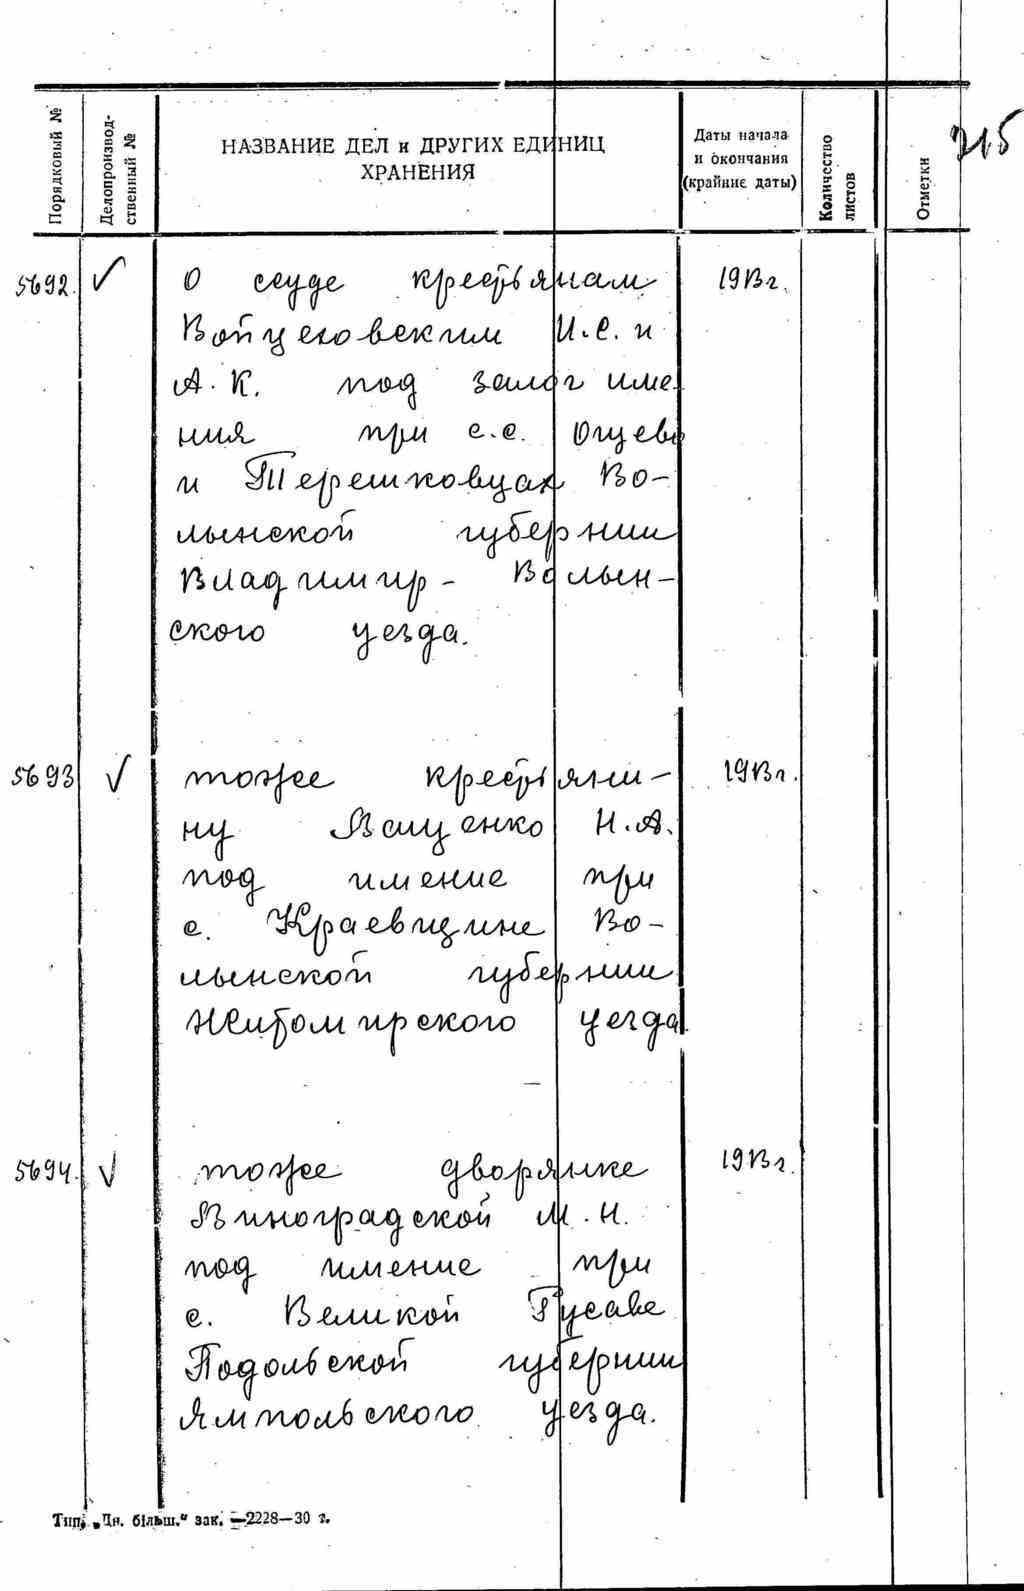 215
Порядковый №
Делопроизвод-
ственный №
НАЗВАНИЕ ДЕЛ и ДРУГИХ ЕДИНИЦ
ХРАНЕНИЯ
Даты начала
и окончания
(крайние даты)
Количество
листов
Отметки
5692. √ О ссуде крестьянам 1913 г.
Войцеховским И.С. и
А.К. под залог име-
ния при с.с.
и Терешковцах Во-
лынской губернии
Владимир-Волын-
ского уезда.
5693 √ тоже крестьяни- 1913 г.
ну Ващенко Н.А.
под имение при
с. Краевщине Во-
лынской губернии
Житомирского уезда.
5694. √ тоже дворянке 1913 г.
Виноградской М.Н.
под имение при
с. Великой Русаве
Подольской губернии
Ямпольского уезда.
Тип. „Дн. більш." зак. —2228—30 т.